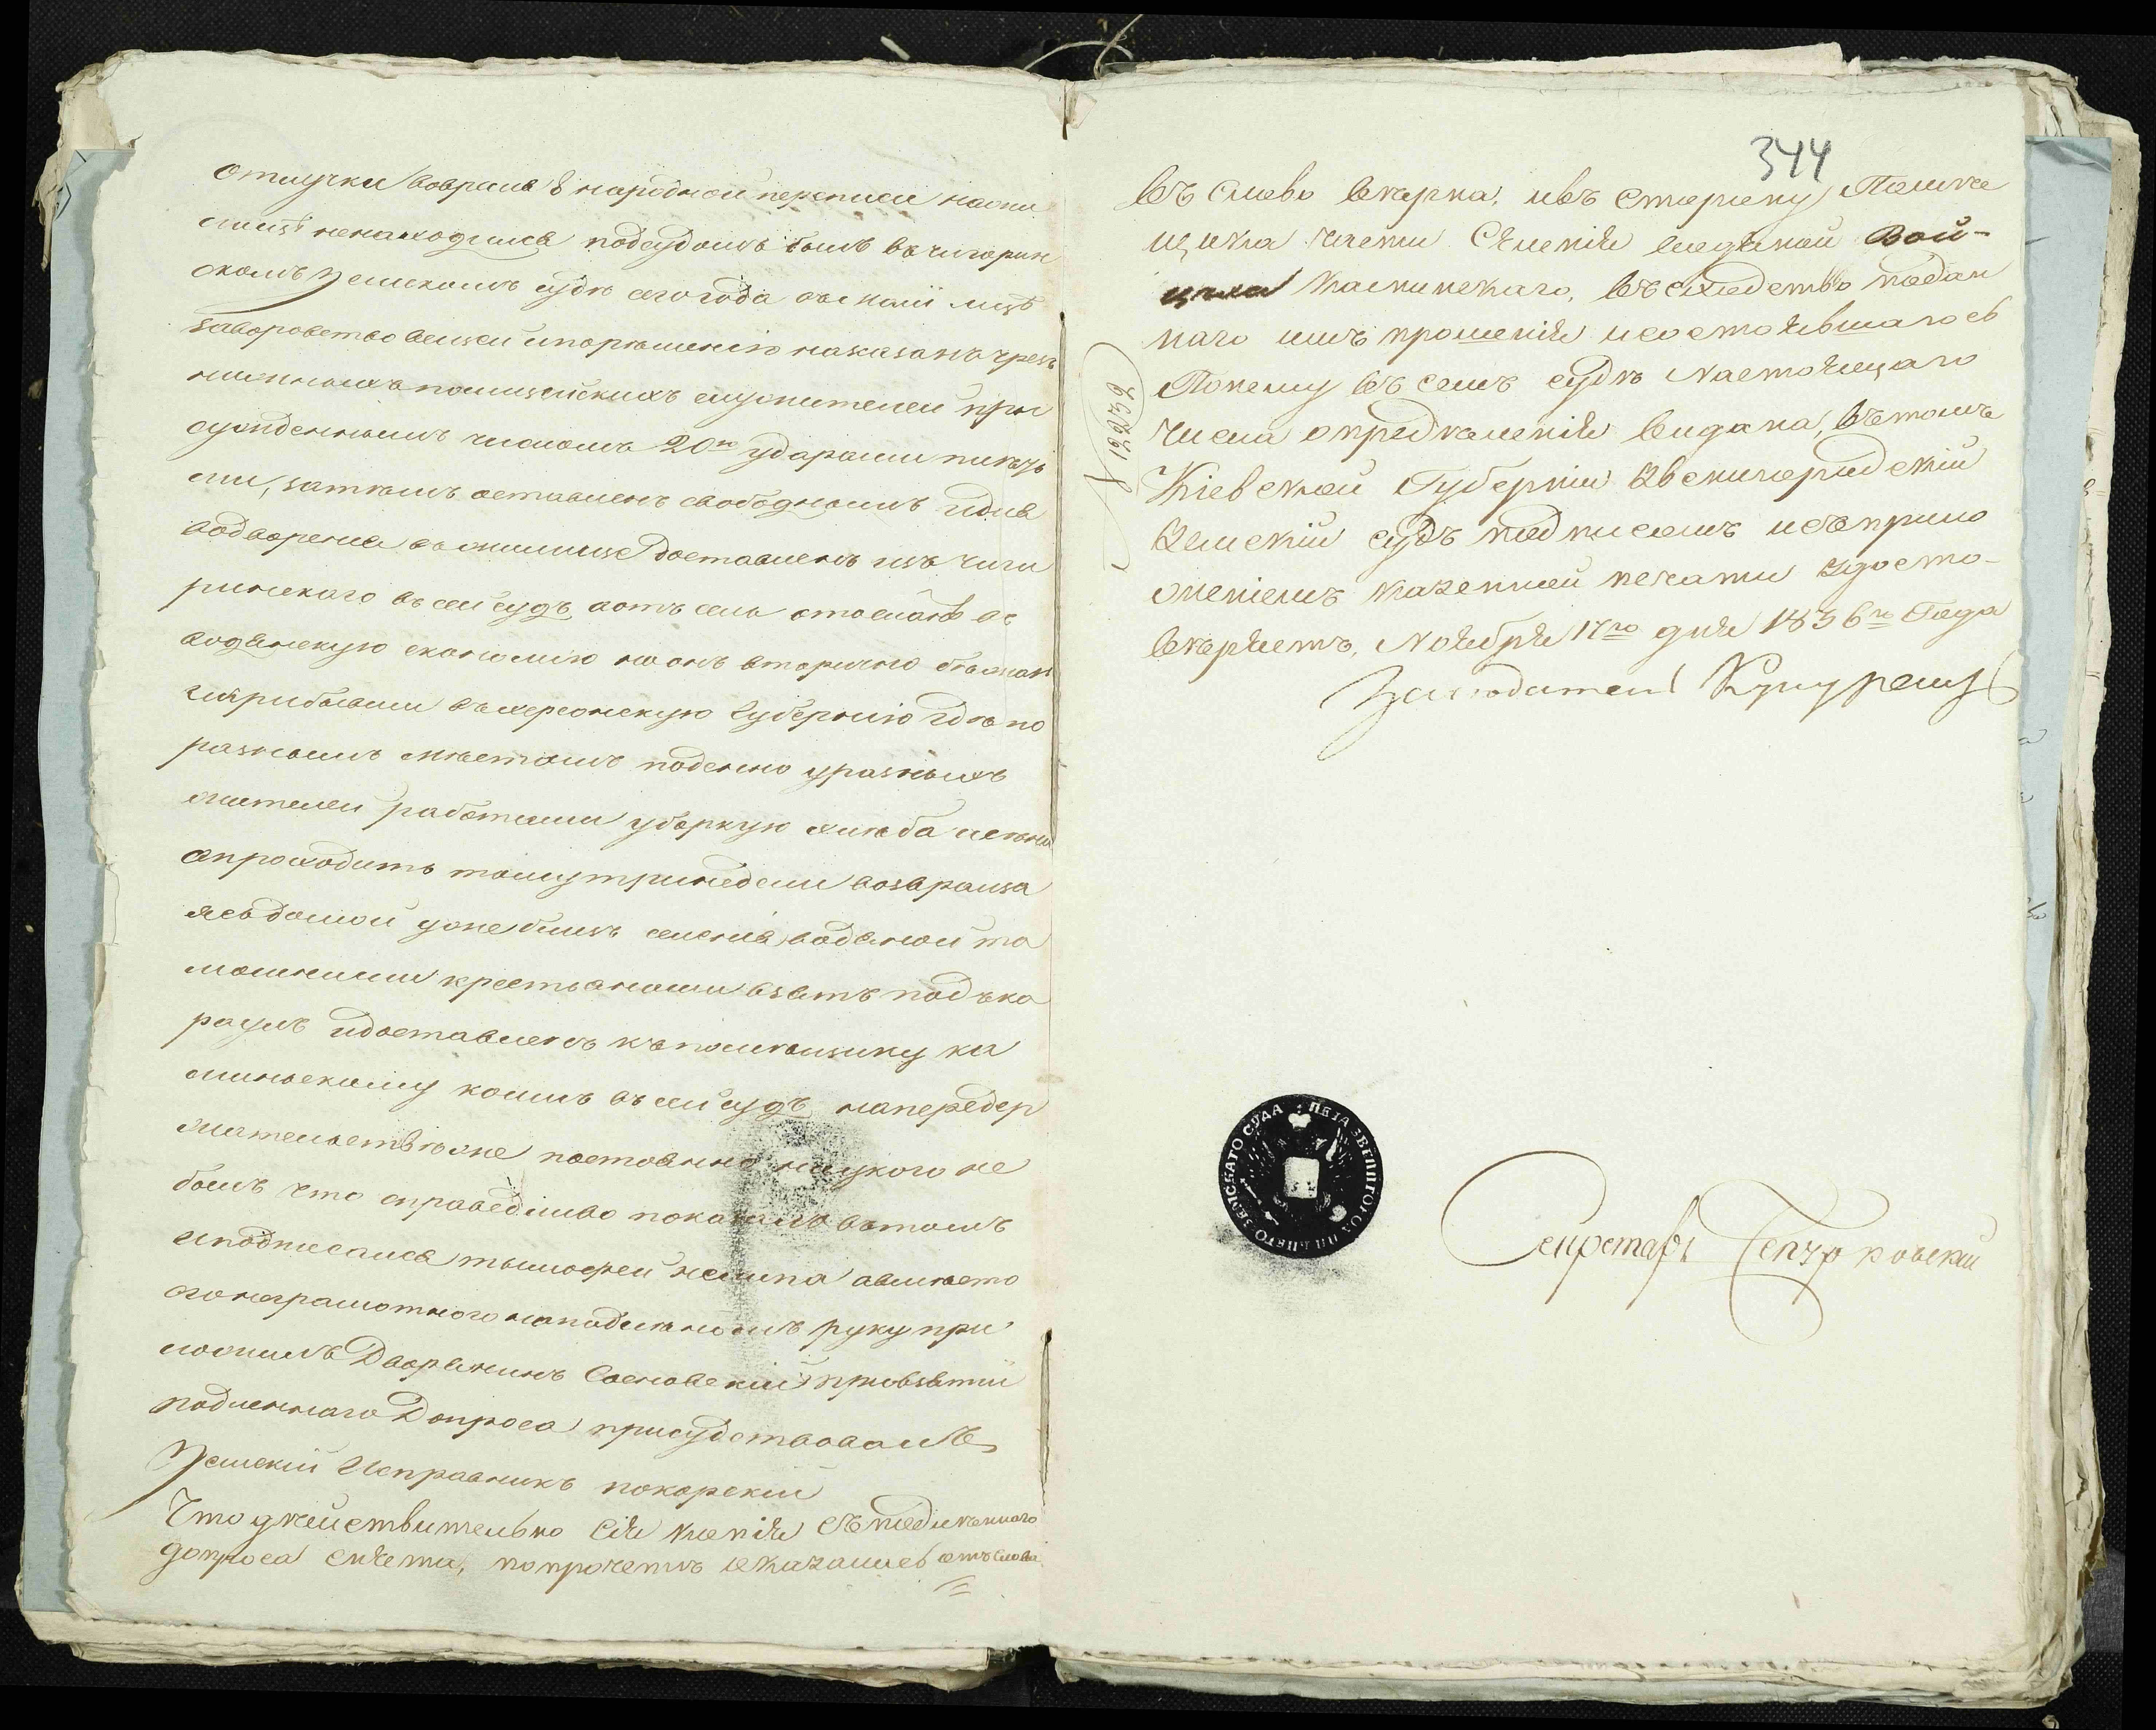 отлучки вовремя 8 народной переписи наони
лицѣ ненаходился подсудомъ былъ въ чигирин
скомъ земскомъ судѣ сего года
заворовство вещей ипорѣшенію наказанъ чрезъ
нижныхъ полицейскихъ служителей при
сужденнымъ числомъ 20ю ударами плетъ
ми, затѣмъ оставленъ свободнымъ идля
водворенія въ жилище доставленъ изъ чиги
ринского въ сей судъ аотъ сель отосланъ въ
водянскую економію но онъ вторично бѣжалъ
иприбывши въ херсонскую Губернію гдѣ по
разнымъ мѣстамъ поденно уразныхъ
жителей работалъ уборкую хлѣба исѣна
апроходитъ тому тринедели возвраща
ясь домой уже близъ селенія водяной та
мошними крестьянами взятъ подъка
раулъ идоставленъ къ помѣщику ка
минскому коимъ въ сей судъ, напередер
жательствѣ же постоянно ниукого не
былъ что справедливо показалъ вътомъ
иподписался тимофей авмѣсто
егонеграмотного наподлѣномъ руку при
ложилъ Дворянинъ Сосновскій привзятіи
подленнаго Допроса присудствовалъ
Земскій Исправникъ покорскій
Что дѣйствительно сія копія съ подлѣннаго
допроса снята, попрочетѣ оказалась отъслова
344
въ слово вѣрна, ивъ сторону Помѣ
щика части Сѣленія водяной Вой-
цеха Каминскаго, въследство подан
наго имъ прошенія исостоявшагося
Почему въ семъ судѣ Настоящаго
числа опредѣленія видана, вътомъ
Кіевской Губерніи Звенигородскій
Земскій судъ подписомъ исъприло
женіемъ казенной печати удосто-
вѣряетъ, Ноября 17го дня 1836го Года
№ 12232
Засѣдатель
ПЕЧА ЗВЕНИГОРОДЦКАГО ЗЕМСКАГО СУДА
Секретарь